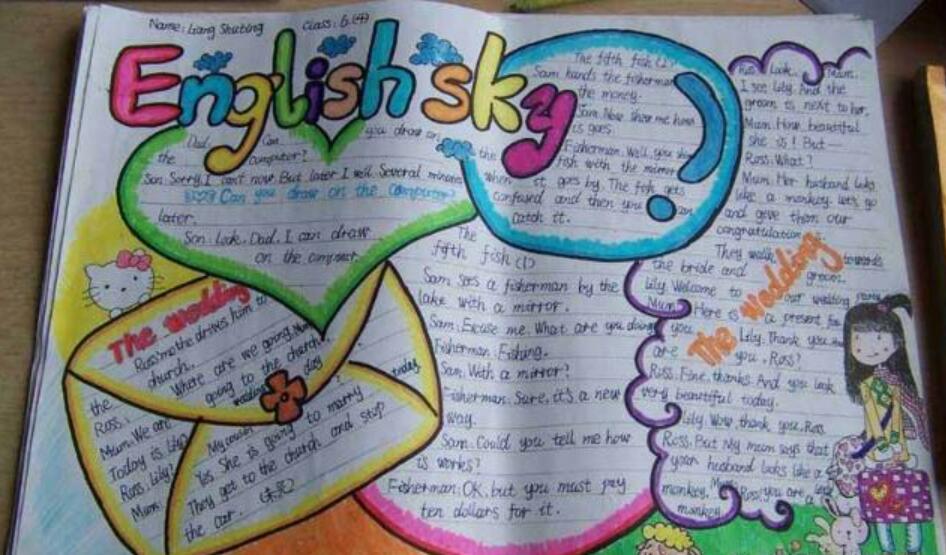 Name: Liang Shubing Class: 6.(4)
English sky
Dad. Can you draw on
the computer?
Son: Sorry, I can't now. But later I will. Several minutes
Can you draw on the computer?
later.
Son: Look, Dad. I can draw
on the computer.
The fifth fish (2)
Sam hands the fisherman
the money.
Sam: Now show me how
is goes.
Fisherman: Well, you show
the fish with the mirror
when it goes by. The fish gets
confused and then you can
catch it.
The
fifth fish (1)
Sam sees a fisherman by the
lake with a mirror.
Sam: Excuse me. What are you doing
Fisherman: Fishing.
Sam: With a mirror?
Fisherman: Sure, it's a new
way.
Sam: Could you tell me how
is works?
Fisherman: OK, but you must pay
ten dollars for it.
The wedding
Ross' mo the drives him to
the church.
Ross: Where are we going, Mum?
Mum: We are going to the church.
Today is Lily wedding day
Ross: Lily? My cousin?
Mum: Yes she is going to marry today.
They get to the church and stop
the car.
The wedding
Ross: Look, Mum.
I see Lily. And the
groom is next to her.
Mum: How beautiful
she is! But—
Ross: What?
Mum: Her husband looks
like a monkey. Let's go
and give them our
congratulation
They walk towards
the bride and groom.
Lily: Welcome to our wedding party
Mum: Here is a present for
you
Lily: Thank you. How
are you, Ross?
Ross: Fine, thanks. And you look
very beautiful today.
Lily: Wow, thank you, Ross
Ross: But my mum says that
your husband looks like a
monkey. Mum: Ross! you are a
monkey.